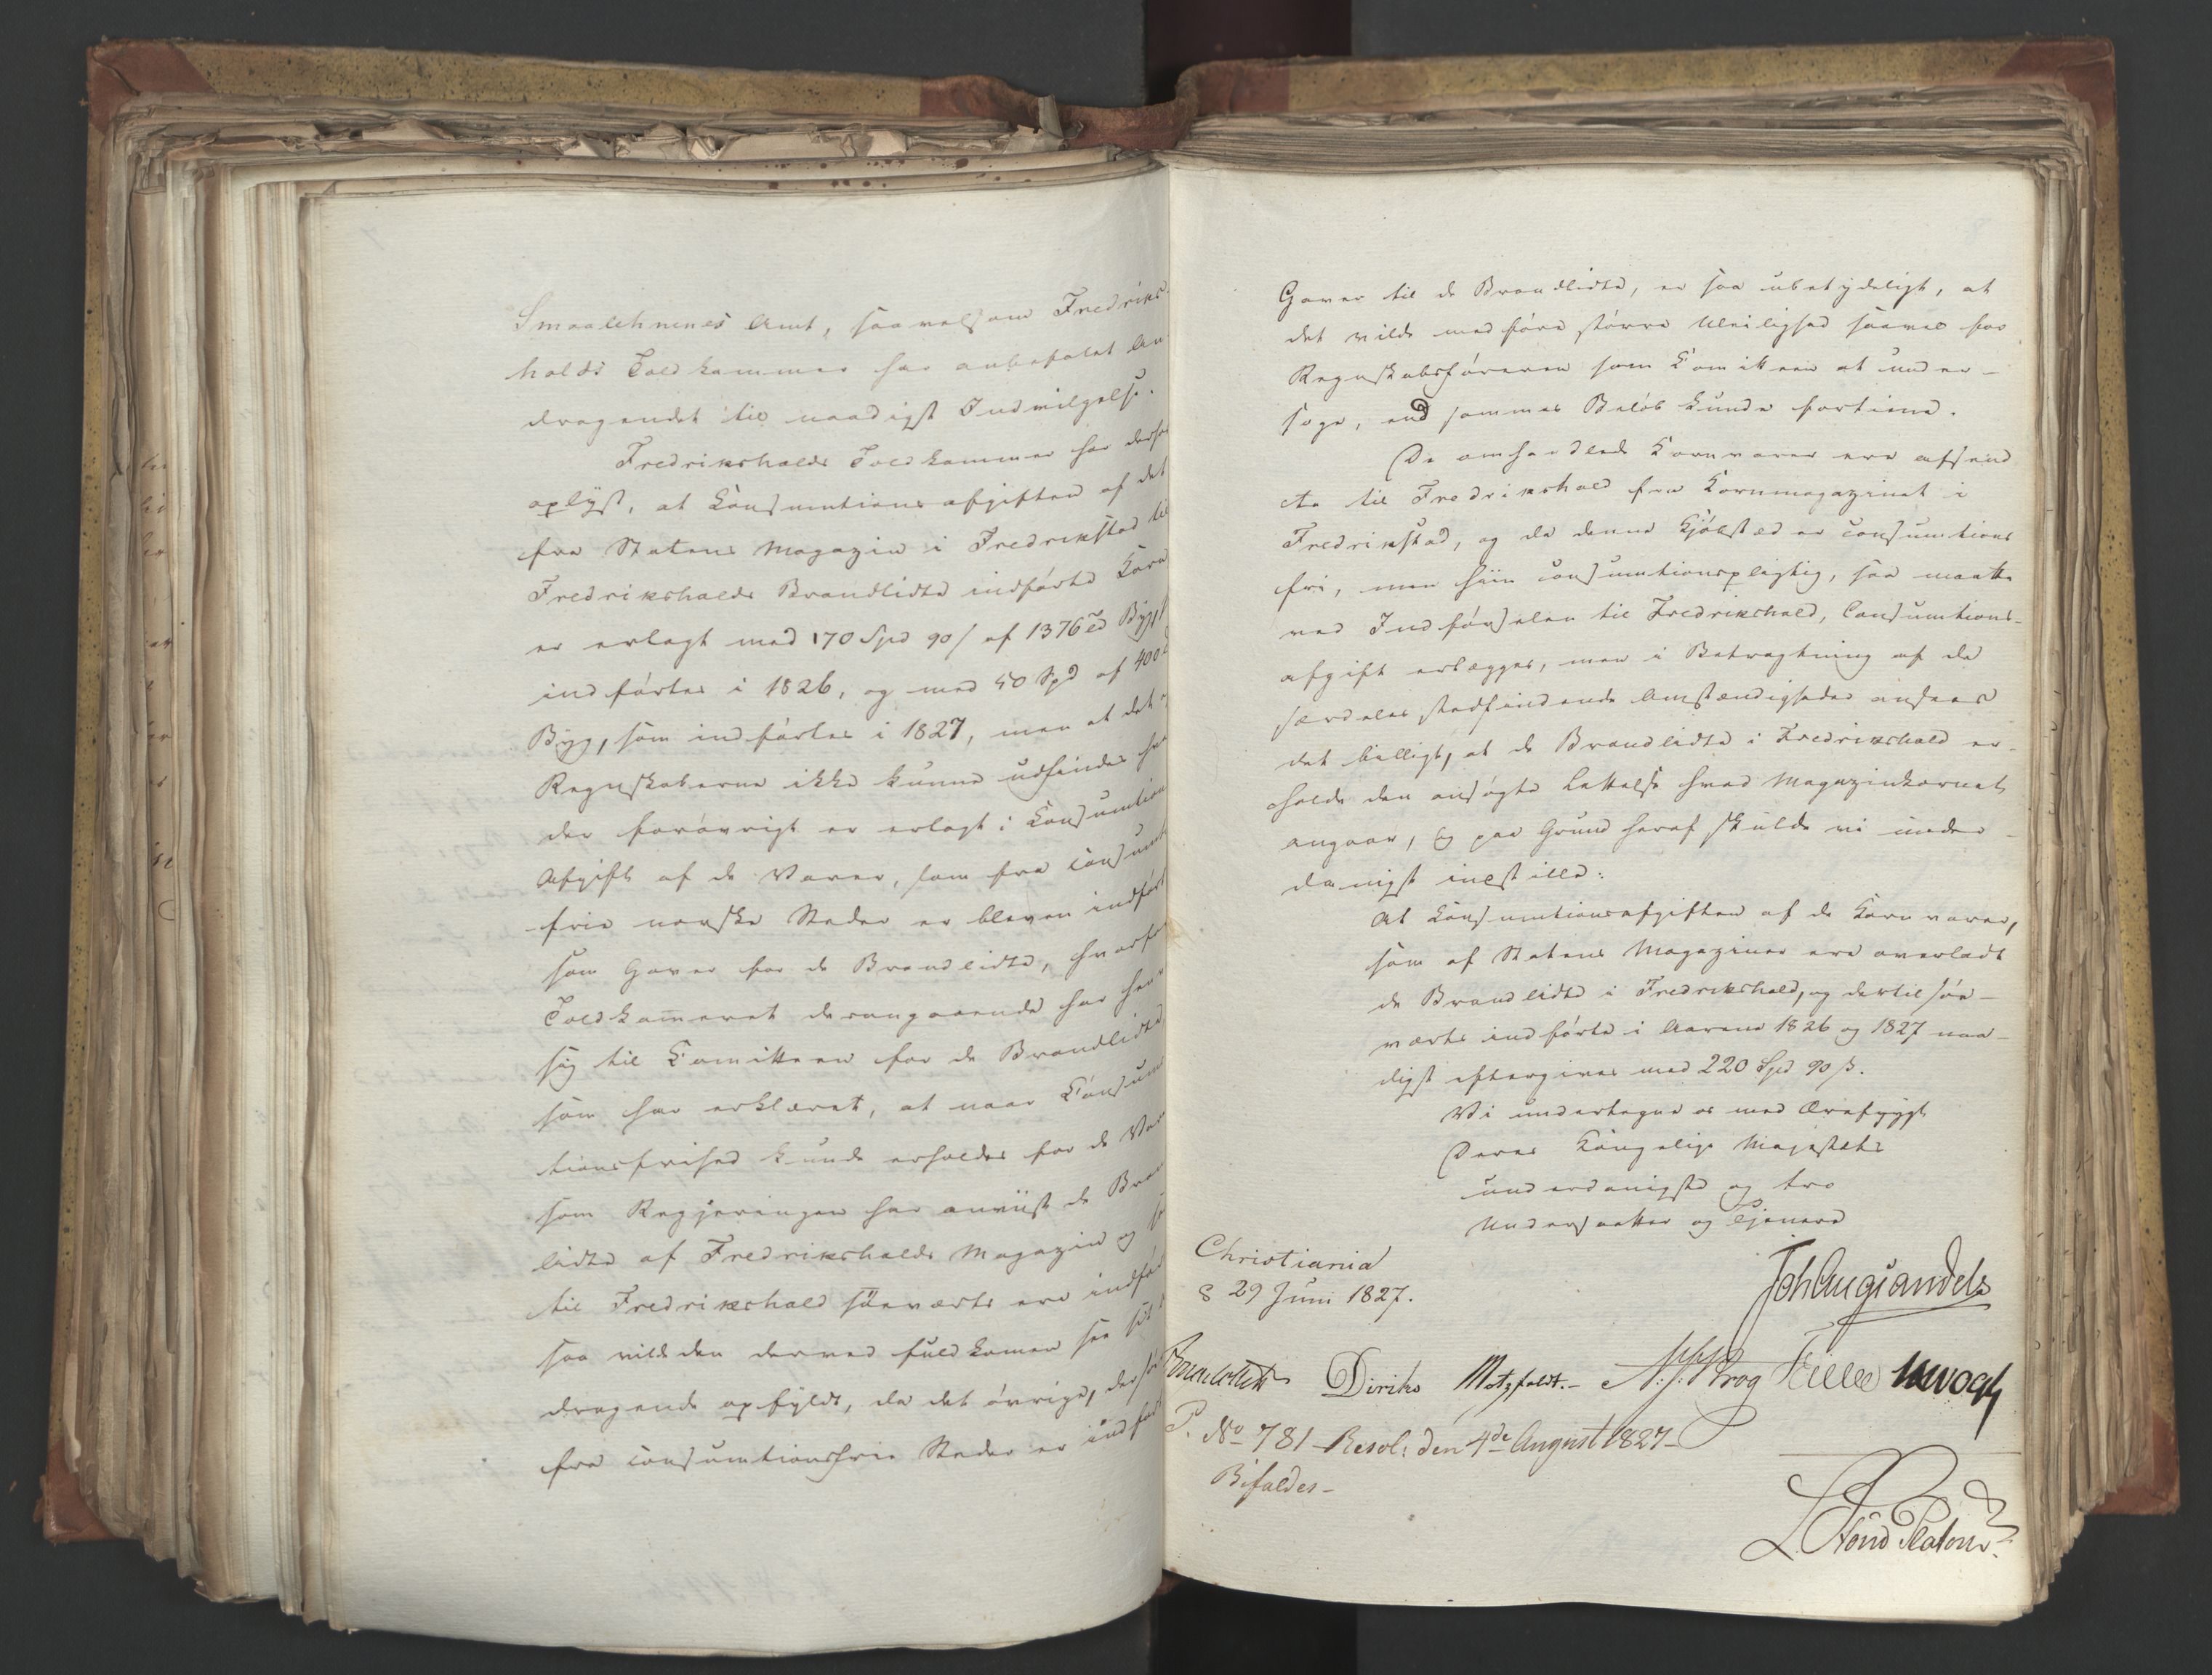 Smaalehnenes Amt, saavelsom Fredriks-
halds Toldkammer har anbefalet An-
dragendet til naadigst Indvilgelse.
Fredrikshalds Toldkammer har derhos
oplyst, at Consumtionsafgiften af det
fra Statens Magazin i Fredrikstad til
Fredrikshalds Brandlidte indførte Korn
er erlagt med 170 Spd 90 s af 1376 Td Byg,
indførtes i 1826, og med 50 Spd af 400
Byg, som indførtes i 1827, men at det
Regnskaberne ikke kunne udfindes hva
der forøvrigt er erlagt i Consumtion
Afgift af de Varer, som fra consumt
frie norske Steder er bleven indført
som Gaver for de Brandlidte, hvorfor
Toldkammeret desangaaende har hen
sig til Comitteen for de Brandlidte
som har erklæret, at naar Consum
tionsfrihed kunde erholdes for de Var
som Regjeringen har anviist de Bran
lidte af Fredrikshalds Magazin og
til Fredrikshald søeværts ere indfør
saa vilde den derved fuldkommen see sit
dragende opfyldt, da det øvrige, der
fra consumtionsfrie Steder er indført
Gaver til de Brandlidte, er saa ubetydeligt, at
det vilde medføre større Uleilighed saavel for
Regnskabsføreren som Comitteen at under-
søge, end sammes Beløb kunde fortiene.
De omhandlede Kornvarer ere afsend
te til Fredrikshald fra Kornmagazinet i
Fredrikstad, og da denne Kjøbsted er consumtions
fri, men hiin consumtionspligtig, saa maatte
ved Indførselen til Fredrikshald, Consumtions-
afgift erlægges, men i Betragtning af de
særdeles stedfindende Omstændigheder ansees
det billigt, at de Brandlidte i Fredrikshald er-
holde den ansøgte Lettelse hvad Magazinkornet
angaaer, og paa Grund heraf skulde vi under-
danigst indstille:
At Consumtionsafgiften af de Kornvarer,
som af Statens Magaziner ere overladt
de Brandlidte i Fredrikshald, og dertil søe-
værts indførte i Aarene 1826 og 1827 naa-
digst eftergives med 220 Spd 90 s.
Vi undertegne os med Ærefrygt
Deres Kongelige Majestæts
underdanigste og tro
Undersaatter og Tjenere
Christiania
d 29 Juni 1827.
Joh Aug Sandels
Collett Diriks Motzfeldt.- Krog
P. No 781 Resol: den 4de August 1827
Bifaldes-